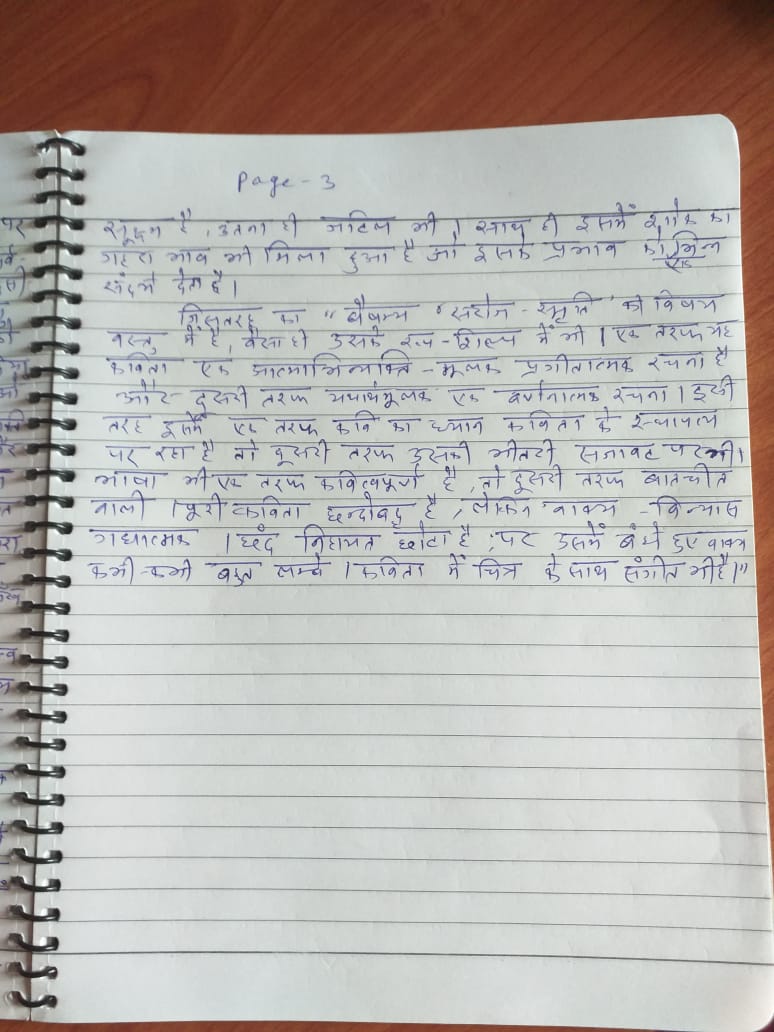 Page - 3
सूक्ष्म है, उतना ही जटिल भी। साथ ही इसमें शोक का
गहरा भाव भी मिला हुआ है जो इसके प्रभाव को भिन्न
एक
संदर्भ देता है।
जिसतरह का "वैषम्य 'सरोज - स्मृति' की विषय
वस्तु में है, वैसा ही उसके रूप - शिल्प में भी। एक तरफ यह
कविता एक आत्माभिव्यक्ति - मूलक प्रगीतात्मक रचना है
और दूसरी तरफ यथार्थमूलक एक वर्णनात्मक रचना। इसी
तरह इसमें एक तरफ कवि का ध्यान कविता के स्थापत्य
पर रहा है तो दूसरी तरफ उसकी भीतरी सजावट पर भी।
भाषा भी एक तरफ कवित्वपूर्ण है, तो दूसरी तरफ बातचीत
वाली। पूरी कविता छन्दोबद्ध है, लेकिन वाक्य - विन्यास
गद्यात्मक। छंद निहायत छोटा है, पर उसमें बंधे हुए वाक्य
कभी-कभी बहुत लम्बे। कविता में चित्र के साथ संगीत भी है।"